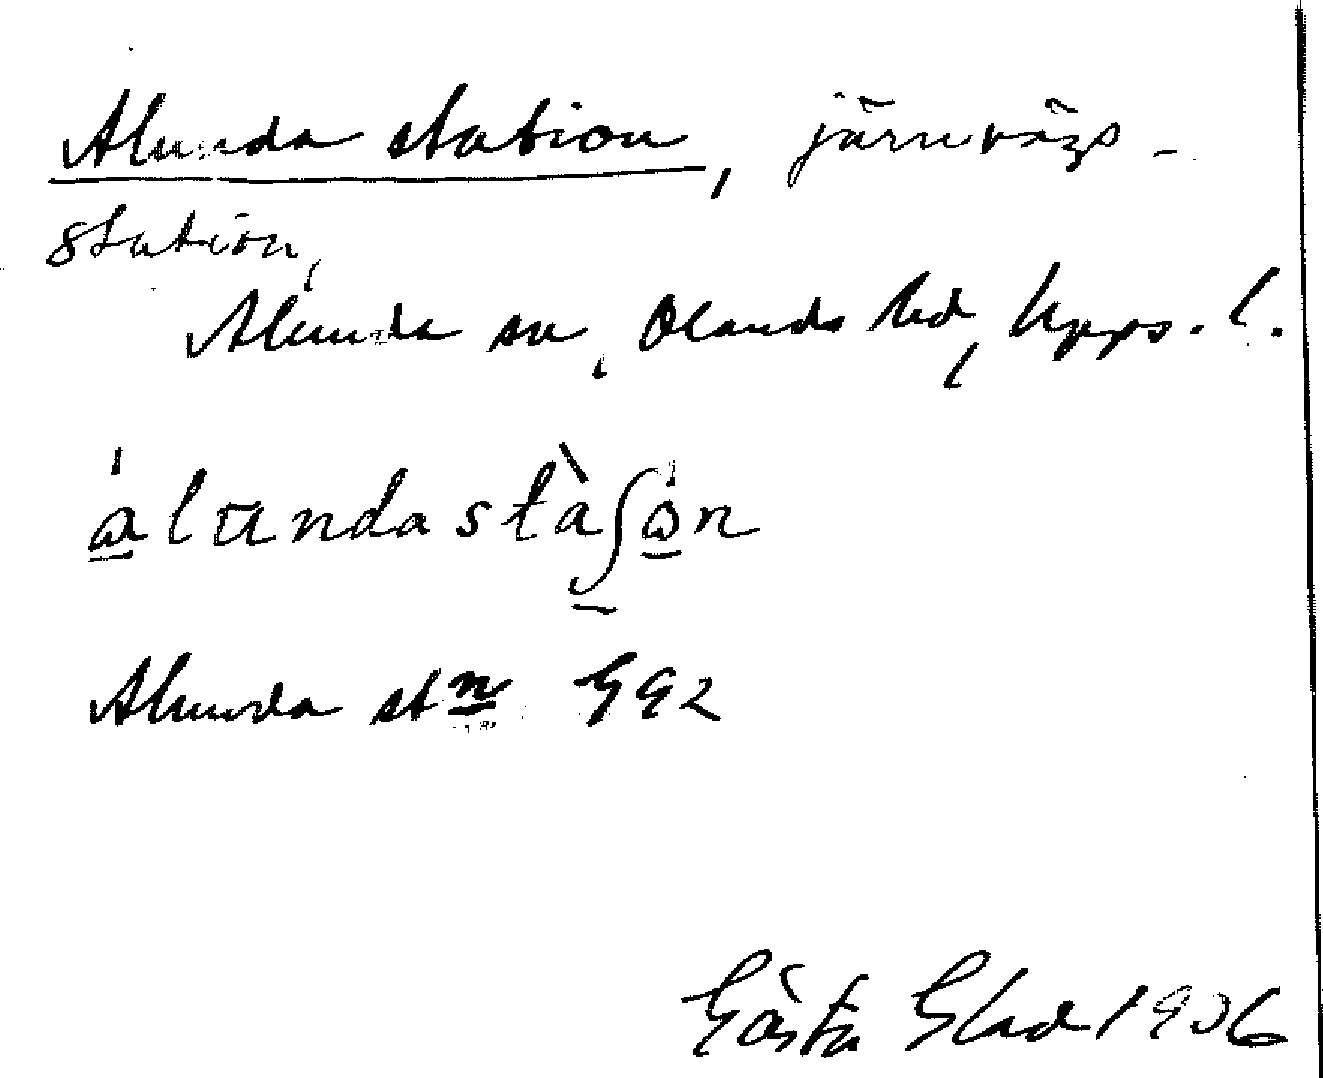 Alunda station, järnvägs-
station,
Alunda sn, Olands hd, Upps. l.
alundastaʃon
Alunda stn G92
Gösta Glad 1906